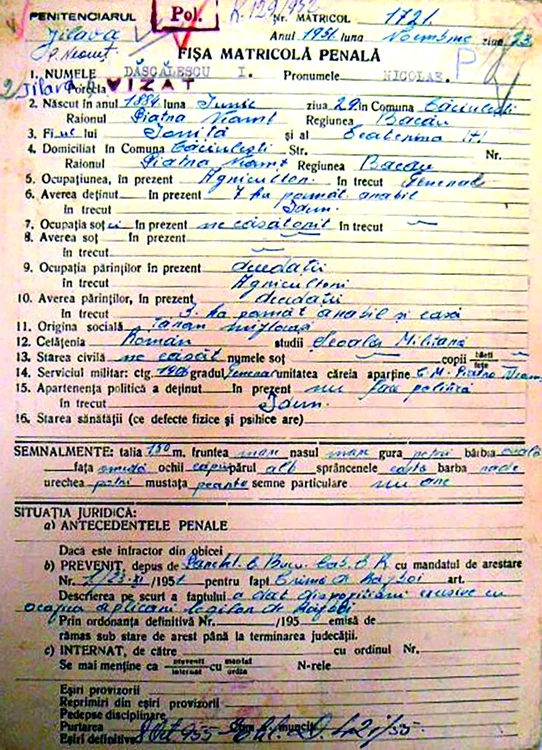 PENITENCIARUL Pol. R.129/952 Nr. MATRICOL 1721
Jilava Anul 1951 luna Noembrie ziua 23
P. Neamț FIȘA MATRICOLĂ PENALĂ P
1. NUMELE DĂSCĂLESCU I. Pronumele NICOLAE.
2 Jilava Porecla VIZAT
2. Născut în anul 1884 luna Iunie ziua 29 în Comuna Căciulești
Raionul Piatra Neamț Regiunea Bacău
3. Fiul lui Ioniță și al Ecaterina
4. Domiciliat în Comuna Căciulești Str. Nr.
Raionul Piatra Neamț Regiunea Bacău
5. Ocupațiunea, în prezent Agricultor. în trecut General
6. Averea deținut în prezent 7 ha pămât arabil
în trecut Idem.
7. Ocupația soț în prezent ne căsătorit în trecut
8. Averea soț în prezent
în trecut
9. Ocupația părinților în prezent decedați
în trecut Agricultori
10. Averea părinților, în prezent decedați
în trecut 3. ha pămât arabil și casă
11. Origina socială Țăran mijlocaș
12. Cetățenia Român studii Școala Militară
13. Starea civilă ne căsăt numele soț copii băeți fete
14. Serviciul militar: ctg. 1906 gradul General unitatea căreia aparține C. M. Piatra Neamț
15. Apartenența politică a deținut în prezent nu face politică
în trecut Idem.
16. Starea sănătății (ce defecte fizice și psihice are)
SEMNALMENTE: talia m. fruntea mare nasul mare gura potri bărbia ovală
fața ochii căprui părul alb sprâncenele barba rade
urechea potri mustața semne particulare nu are
SITUAȚIA JURIDICĂ:
a) ANTECEDENTELE PENALE
Dacă este infractor din obicei
b) PREVENIT, depus de Parchet. C. Buc. Cab. cu mandatul de arestare
Nr. 1/23-XI/1951 pentru fapt Crime de război art.
Descrierea pe scurt a faptului a dat dispozițiuni excesive cu
ocazia aplicării legilor de război
Prin ordonanța definitivă Nr. /195 emisă de
rămas sub stare de arest până la terminarea judecății.
c) INTERNAT, de către cu ordinul Nr.
Se mai menține ca prevenit internat cu mandat ordin N-rele
Eșiri provizorii
Reprimiri din eșiri provizorii
Pedepse disciplinare
Purtarea muncii
Eșiri definitive